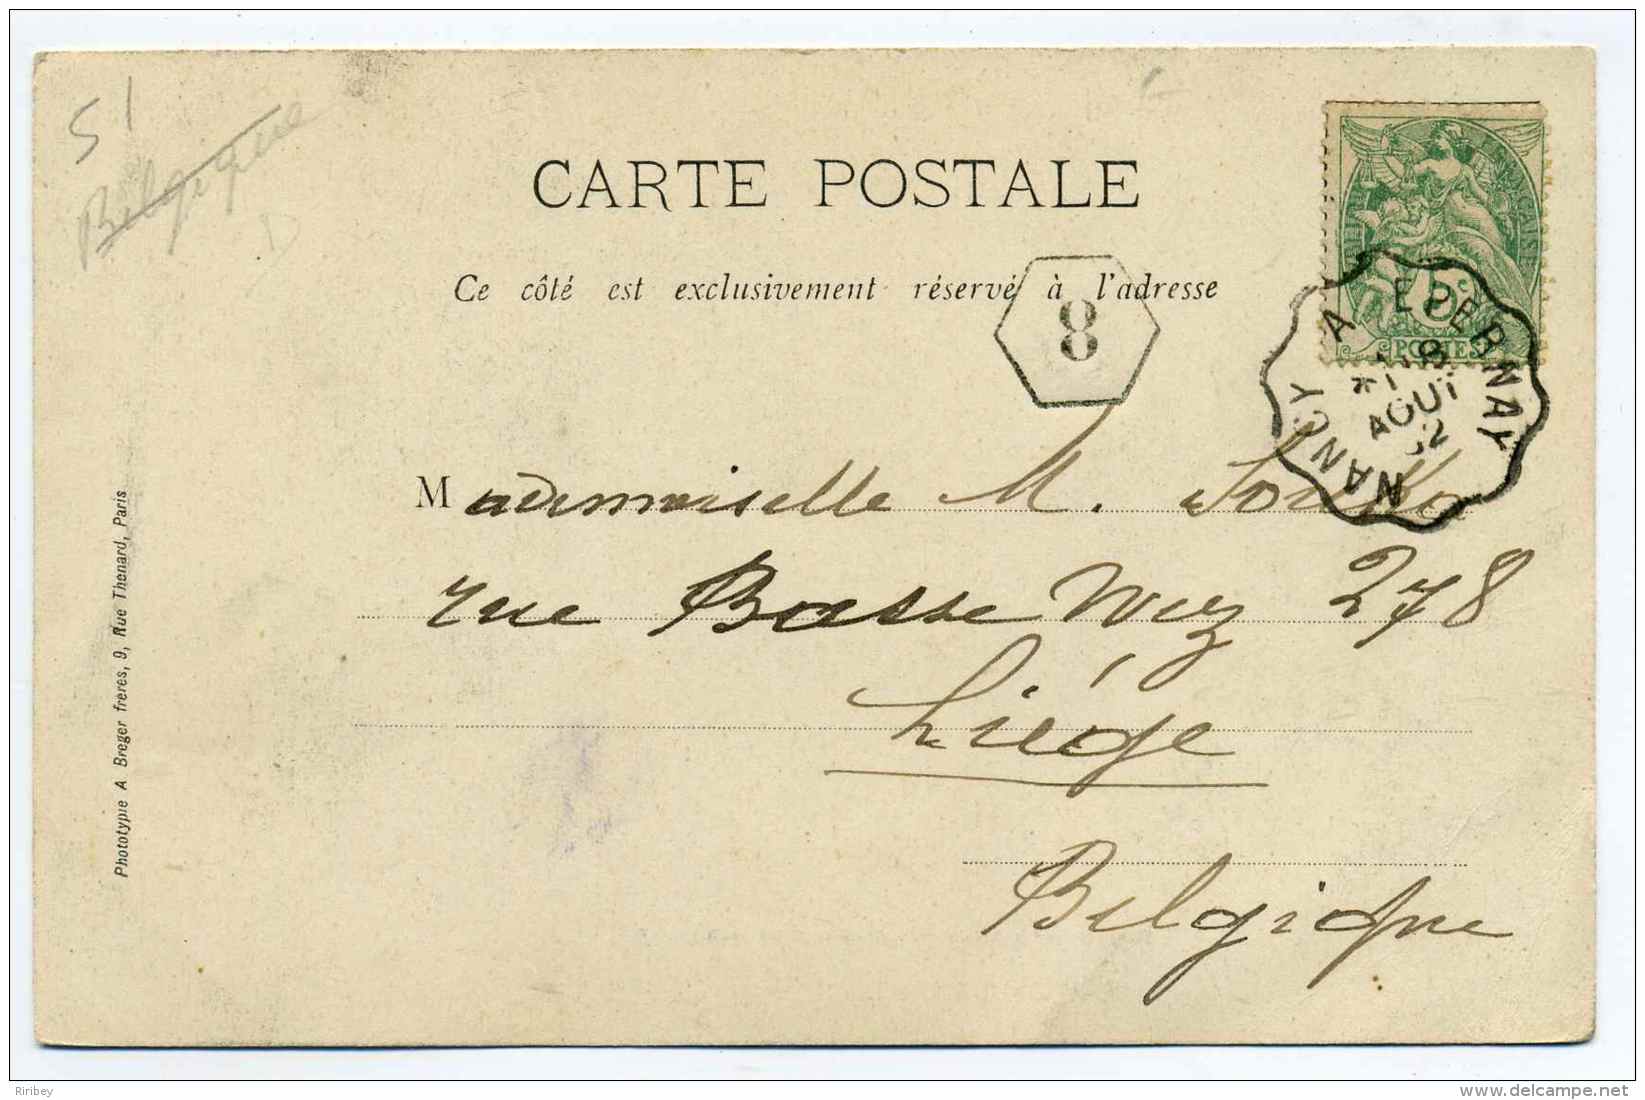 51
Belgique
CARTE POSTALE
Ce côté est exclusivement réservé à l'adresse
8
RÉPUBLIQUE FRANÇAISE
5c
POSTES
NANCY A EPERNAY
8
AOUT
02
Mademoiselle M.
rue Basse Wez 278
Liége
Belgique
Phototypie A Breger frères, 9, Rue Thenard, Paris
Riribey
www.delcampe.net